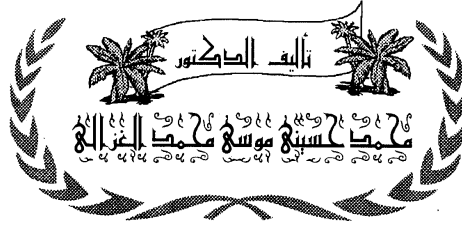 تأليف الدكتور
محمد حسينى موسى محمد الغزالى